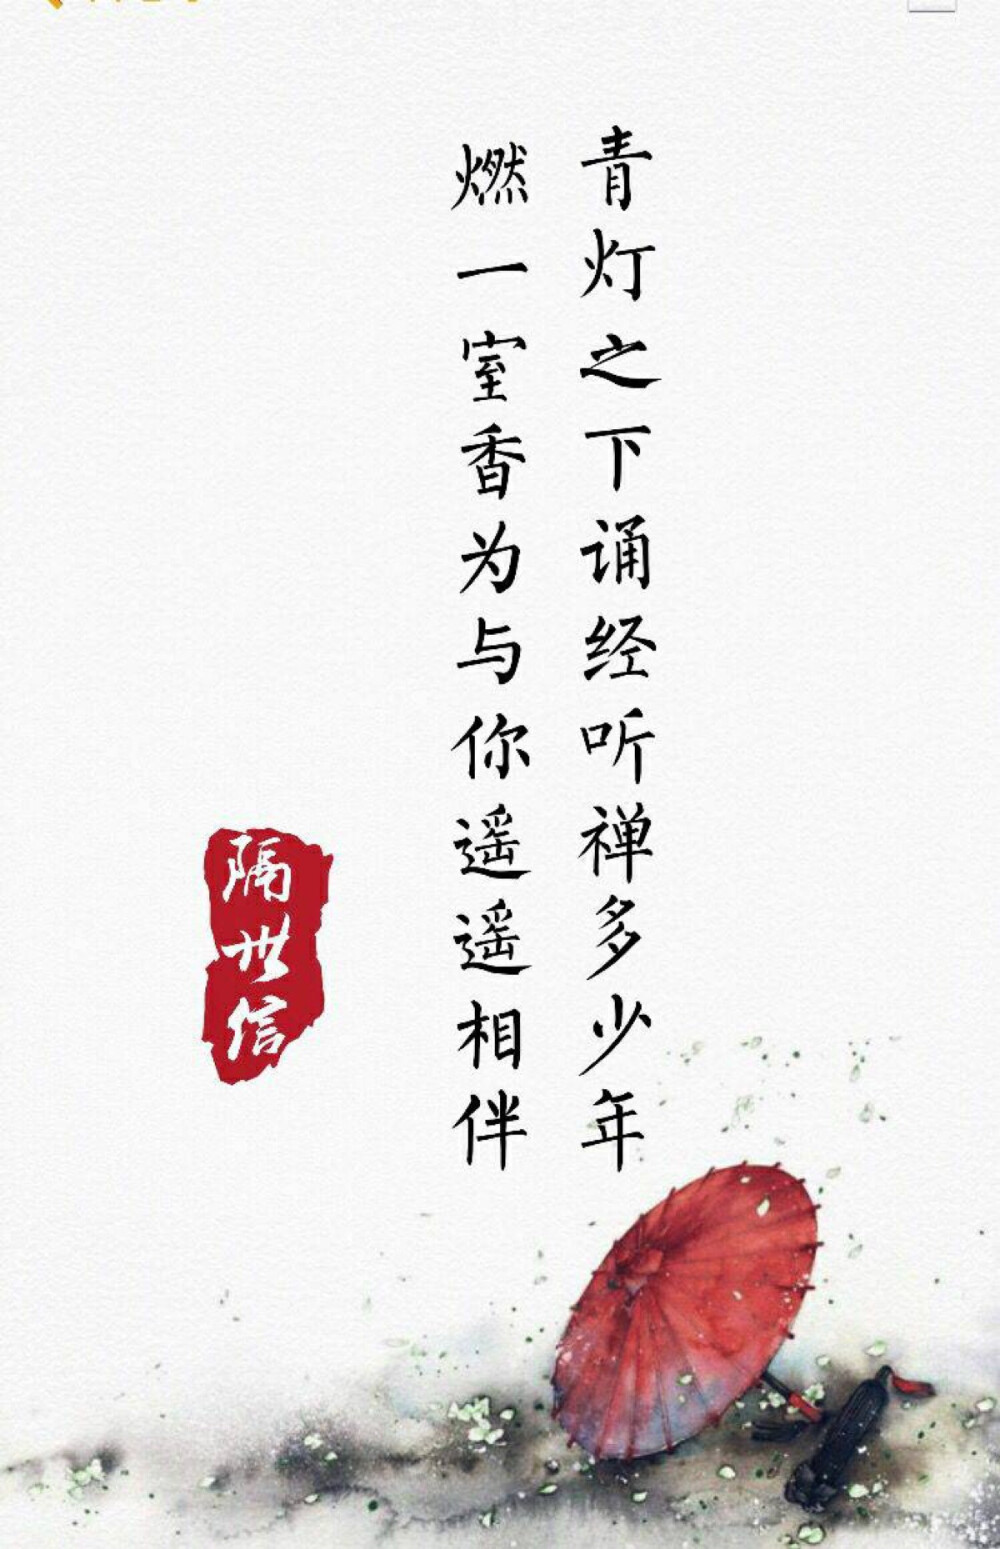 青灯之下诵经听禅多少年
燃一室香为与你遥遥相伴
隔世信